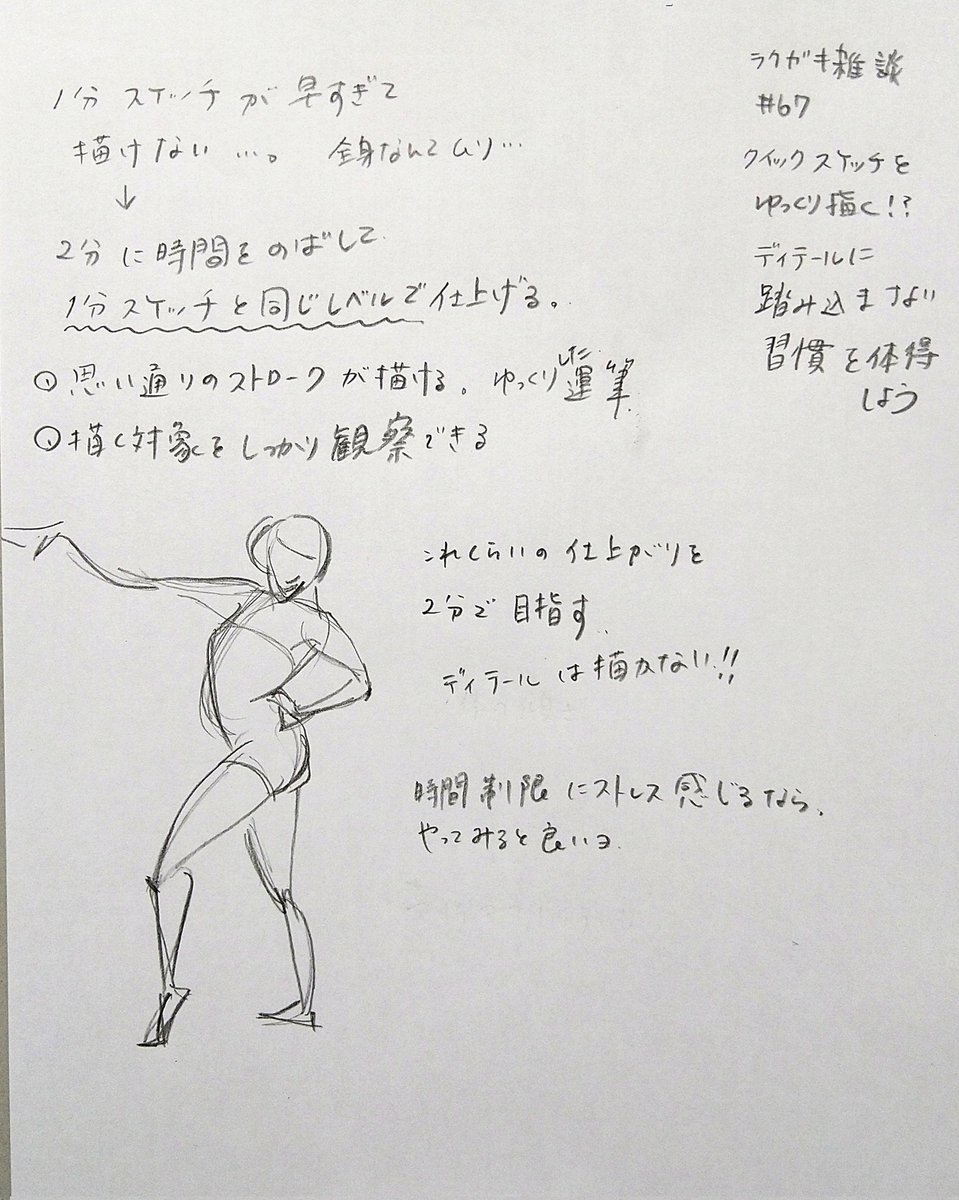 1分スケッチが早すぎて
描けない…。 全身なんてムリ…
↓
2分に時間をのばして
1分スケッチと同じレベルで仕上げる。
○思い通りのストロークが描ける。ゆっくりした運筆
○描く対象をしっかり観察できる
ラクガキ雑談
#67
クイックスケッチを
ゆっくり描く!?
ディテールに
踏み込まない
習慣を体得
しよう
これくらいの仕上がりを
2分で目指す
ディテールは描かない!!
時間制限にストレス感じるなら、
やってみると良いヨ